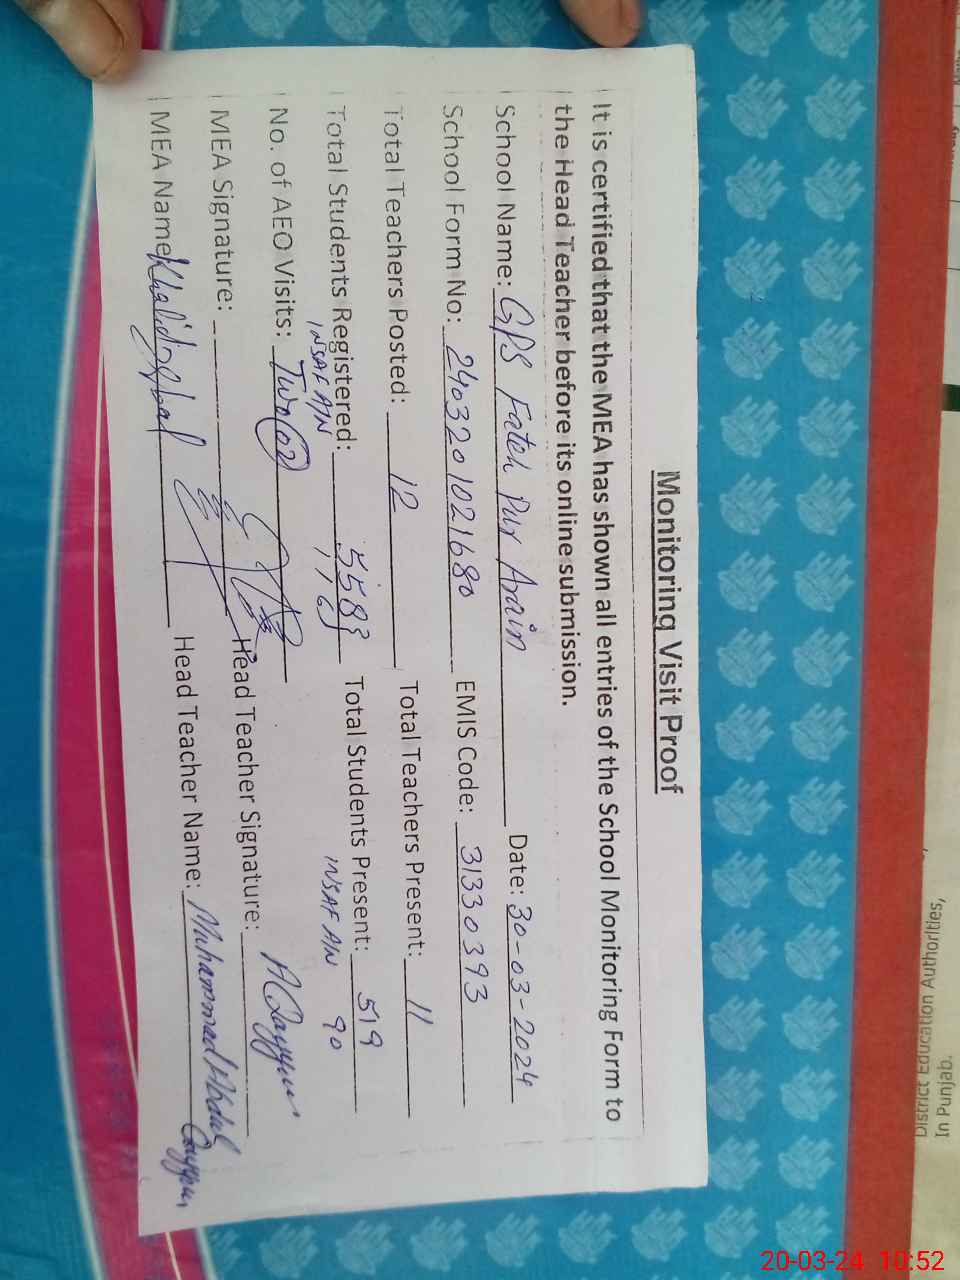 Monitoring Visit Proof
It is certified that the MEA has shown all entries of the School Monitoring Form to
the Head Teacher before its online submission.
School Name: GPS Fateh Pur Arain Date: 30-03-2024
School Form No: 2403201021680 EMIS Code: 31330393
Total Teachers Posted: 12 Total Teachers Present: 11
Total Students Registered: 558 Total Students Present: 519
INSAF AN INSAF AN 90
No. of AEO Visits: Two (02)
MEA Signature: Head Teacher Signature: A Qayyum
MEA Name: Khalid Iqbal Head Teacher Name: Muhammad Abdul Qayyum
District Education Authorities,
In Punjab.
20-03-24 10:52